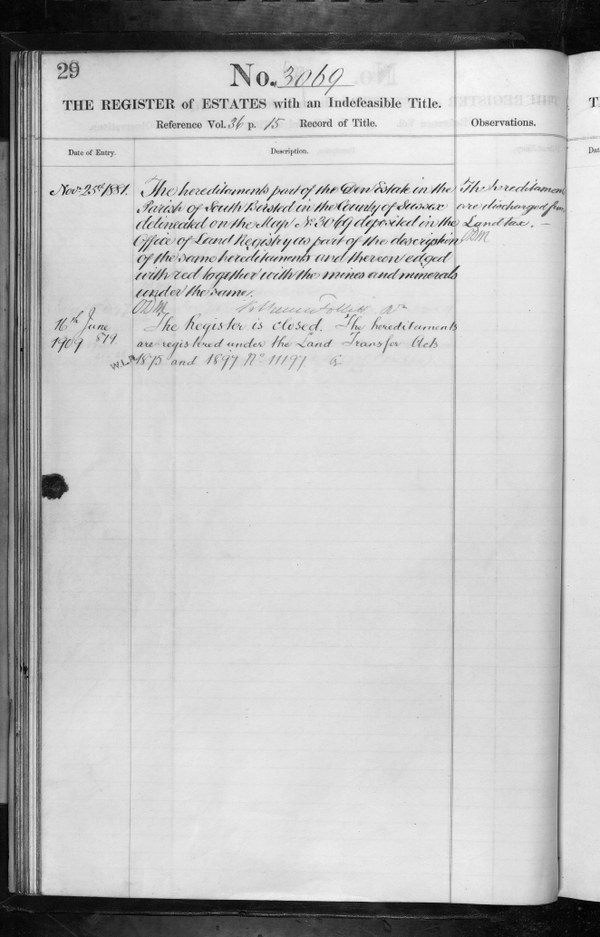 29
No. 3069
THE REGISTER of ESTATES with an Indefeasible Title.
Reference Vol. 36 p. 15 Record of Title.
Observations.
Date of Entry.
Description.
Novr 25th 1881.
The hereditaments part of the Den Estate in the
Parish of South Bersted in the County of Sussex
delineated on the Map No. 3069 deposited in the
Office of Land Registry as part of the description
of the same hereditaments and thereon edged
with red together with the mines and minerals
under the same.
The hereditaments
are discharged from
Land tax. —
16th June
1909
The Register is closed. The hereditaments
are registered under the Land Transfer Acts
1875 and 1897 No 11197